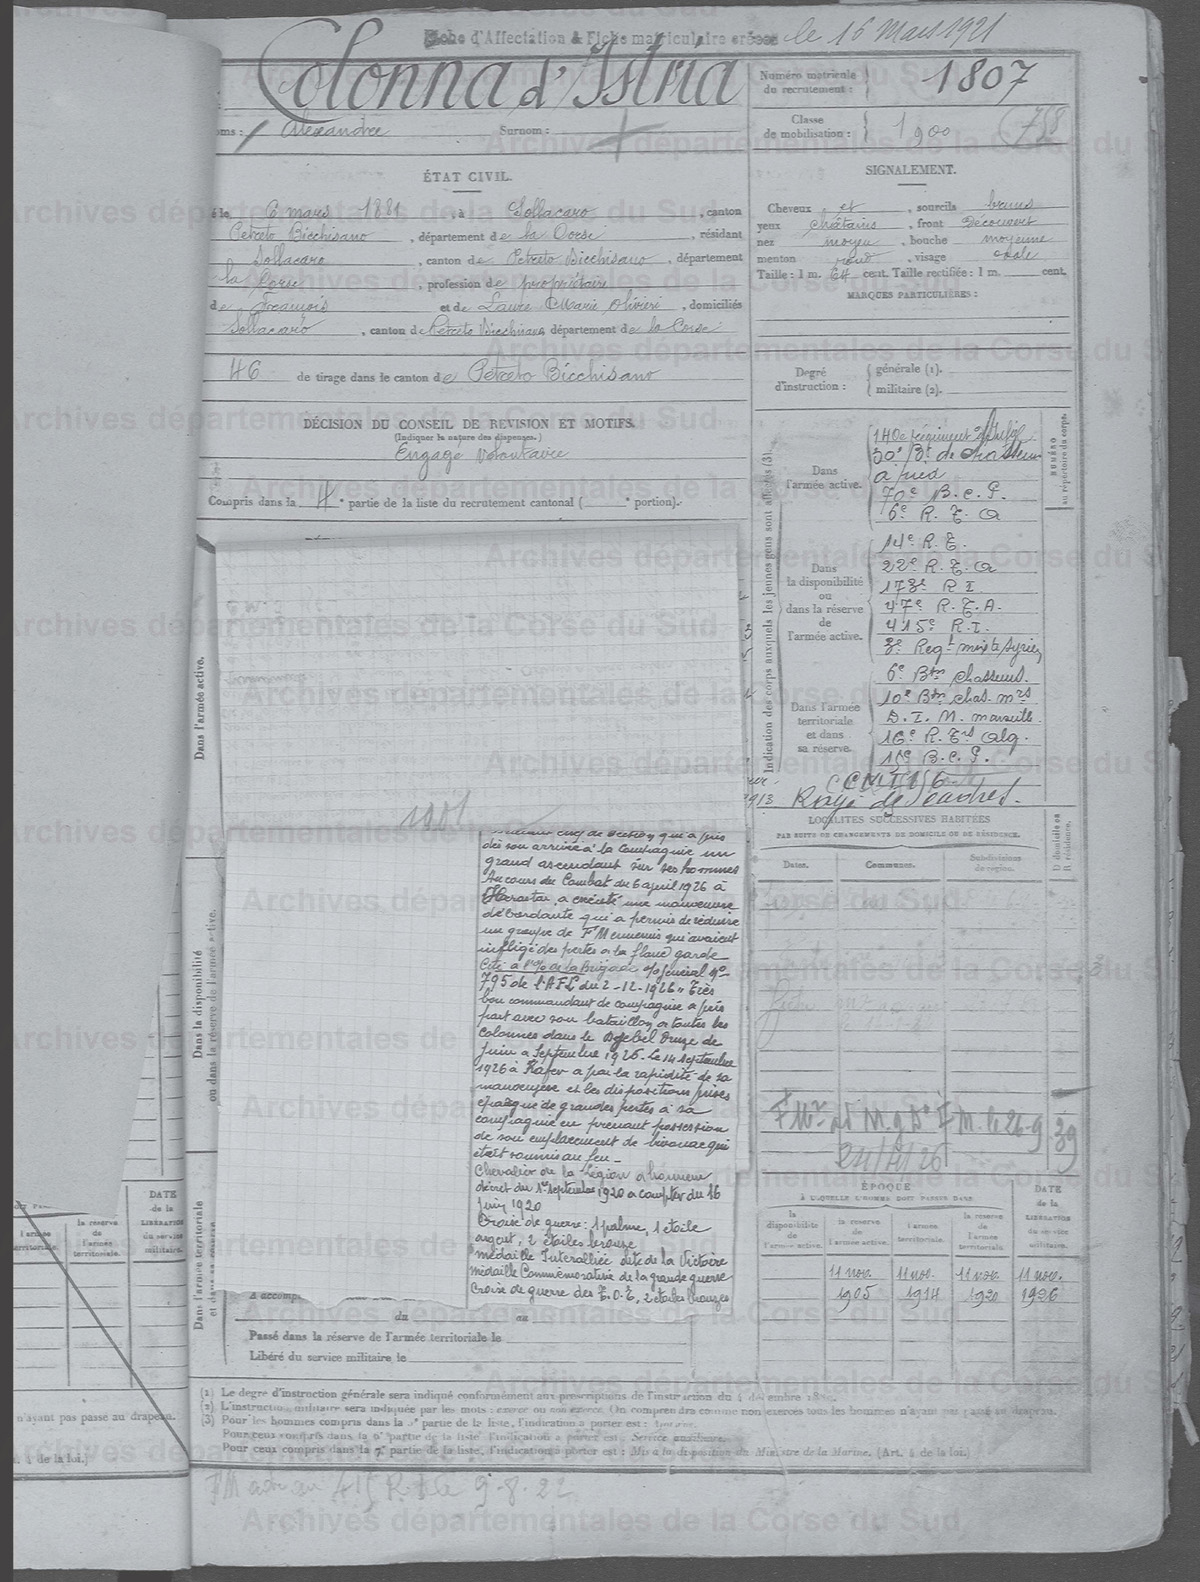 Fiche d'Affectation & Fiche matriculaire créées le 16 Mars 1921
Colonna d'Istria
Numéro matricule du recrutement : 1807
oms : Alexandre Surnom :
Classe de mobilisation : 1900
ÉTAT CIVIL.
é le 6 mars 1881, à Sollacaro, canton
Petreto Bicchisano, département de la Corse, résidant
Sollacaro, canton de Petreto Bicchisano, département
la Corse, profession de propriétaire
de François et de Laure Marie Olivieri, domiciliés
Sollacaro, canton de Petreto Bicchisano département de la Corse
46 de tirage dans le canton de Petreto Bicchisano
SIGNALEMENT.
Cheveux et, sourcils bruns
yeux chatains, front Découvert
nez moyen, bouche moyenne
menton rond, visage ovale
Taille : 1 m. 64 cent. Taille rectifiée : 1 m. cent.
MARQUES PARTICULIÈRES :
Degré d'instruction :
générale (1).
militaire (2).
DÉCISION DU CONSEIL DE REVISION ET MOTIFS.
(Indiquer la nature des dispenses.)
Engagé Volontaire
Compris dans la 4e partie de la liste du recrutement cantonal ( e portion).
Indication des corps auxquels les jeunes gens sont affectés (3).
NUMÉRO au répertoire du corps.
Dans l'armée active.
140e régiment
30e Bt de Chasseurs
à pied
70e B.C.P.
6e R.T.A
Dans la disponibilité ou dans la réserve de l'armée active.
14e R.T.
22e R.T.A
173e R I
47e R.T.A.
415e R.I.
3e Regt mixte Syrien
Dans l'armée territoriale et dans sa réserve.
6e Bon Chasseurs.
10e Bon chas. mrs
D.I.M. Marseille.
16e R. Trs Alg.
15e B.C.P.
Rayé des Cadres.
LOCALITÉS SUCCESSIVES HABITÉES
PAR SUITE DE CHANGEMENTS DE DOMICILE OU DE RÉSIDENCE.
Dates. Communes. Subdivisions de région. D domicile ou R résidence.
Dans l'armée active.
1901
chef de section qui a pris
dès son arrivée à la Compagnie un
grand ascendant sur ses hommes
Au cours du Combat du 6 avril 1926 à
Harastar, a exécuté une manoeuvre
débordante qui a permis de réduire
un groupe de F M ennemis qui avaient
infligé des pertes à la flanc garde
Cité à l'O/ de la Brigade O/Général No
795 de l'A F L du 2-12-1926 " Très
bon commandant de compagnie a pris
part avec son bataillon à toutes les
colonnes dans le Djebel Druze de
juin à Septembre 1926. Le 14 septembre
1926 à Kafer a par la rapidité de sa
manoeuvre et les dispositions prises
épargné de grandes pertes à sa
compagnie en prenant possession
de son emplacement de bivouac qui
était soumis au feu -
Chevalier de la Légion d'honneur
décret du 1er septembre 1920 à compter du 16
juin 1920
Croix de guerre : 1 palme, 1 étoile
argent, 2 étoiles bronze
Médaille Interalliée dite de la Victoire
Médaille Commémorative de la grande guerre
Croix de guerre des T.O.E, 2 étoiles bronze
Dans la disponibilité ou dans la réserve de l'armée active.
Dans l'armée territoriale
A accompl
du au
Passé dans la réserve de l'armée territoriale le
Libéré du service militaire le
ÉPOQUE
À LAQUELLE L'HOMME DOIT PASSER DANS
la disponibilité de l'armée active.
la réserve de l'armée active.
l'armée territoriale.
la réserve de l'armée territoriale
DATE de la LIBÉRATION du service militaire.
11 nov. 11 nov. 11 nov. 11 nov.
1905 1914 1920 1926
(1) Le degré d'instruction générale sera indiqué conformément aux prescriptions de l'instruction du
(2) L'instruction militaire sera indiquée par les mots : exercé ou non exercé. On comprendra comme non exercés tous les hommes n'ayant pas passé au drapeau.
(3) Pour les hommes compris dans la partie de la liste, l'indication à porter est :
Pour ceux compris dans la 6e partie de la liste l'indication à porter est : Service auxiliaire.
Pour ceux compris dans la 7e partie de la liste, l'indication à porter est : Mis à la disposition du Ministre de la Marine. (Art. 4 de la loi.)
l'armée territoriale.
la réserve de l'armée territoriale.
DATE de la LIBÉRATION du service militaire.
n'ayant pas passé au drapeau.
4 de la loi.)
415 R.I. le 9-8-22
Archives départementales de la Corse du Sud